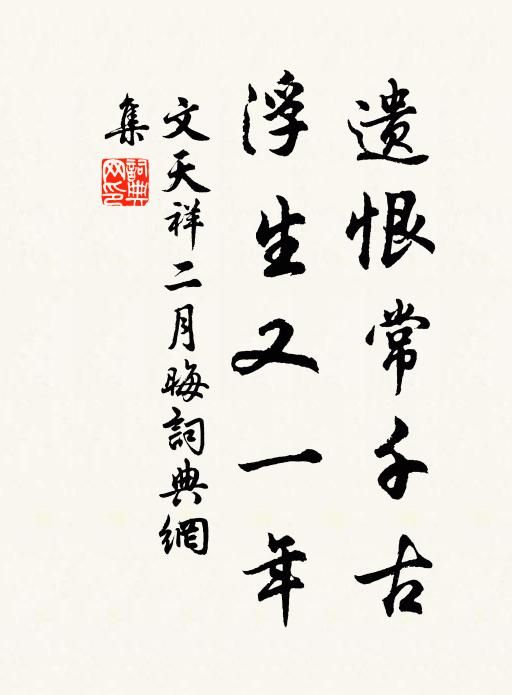 遗恨常千古
浮生又一年
文天祥二月晦詞典網
集
詞典网印